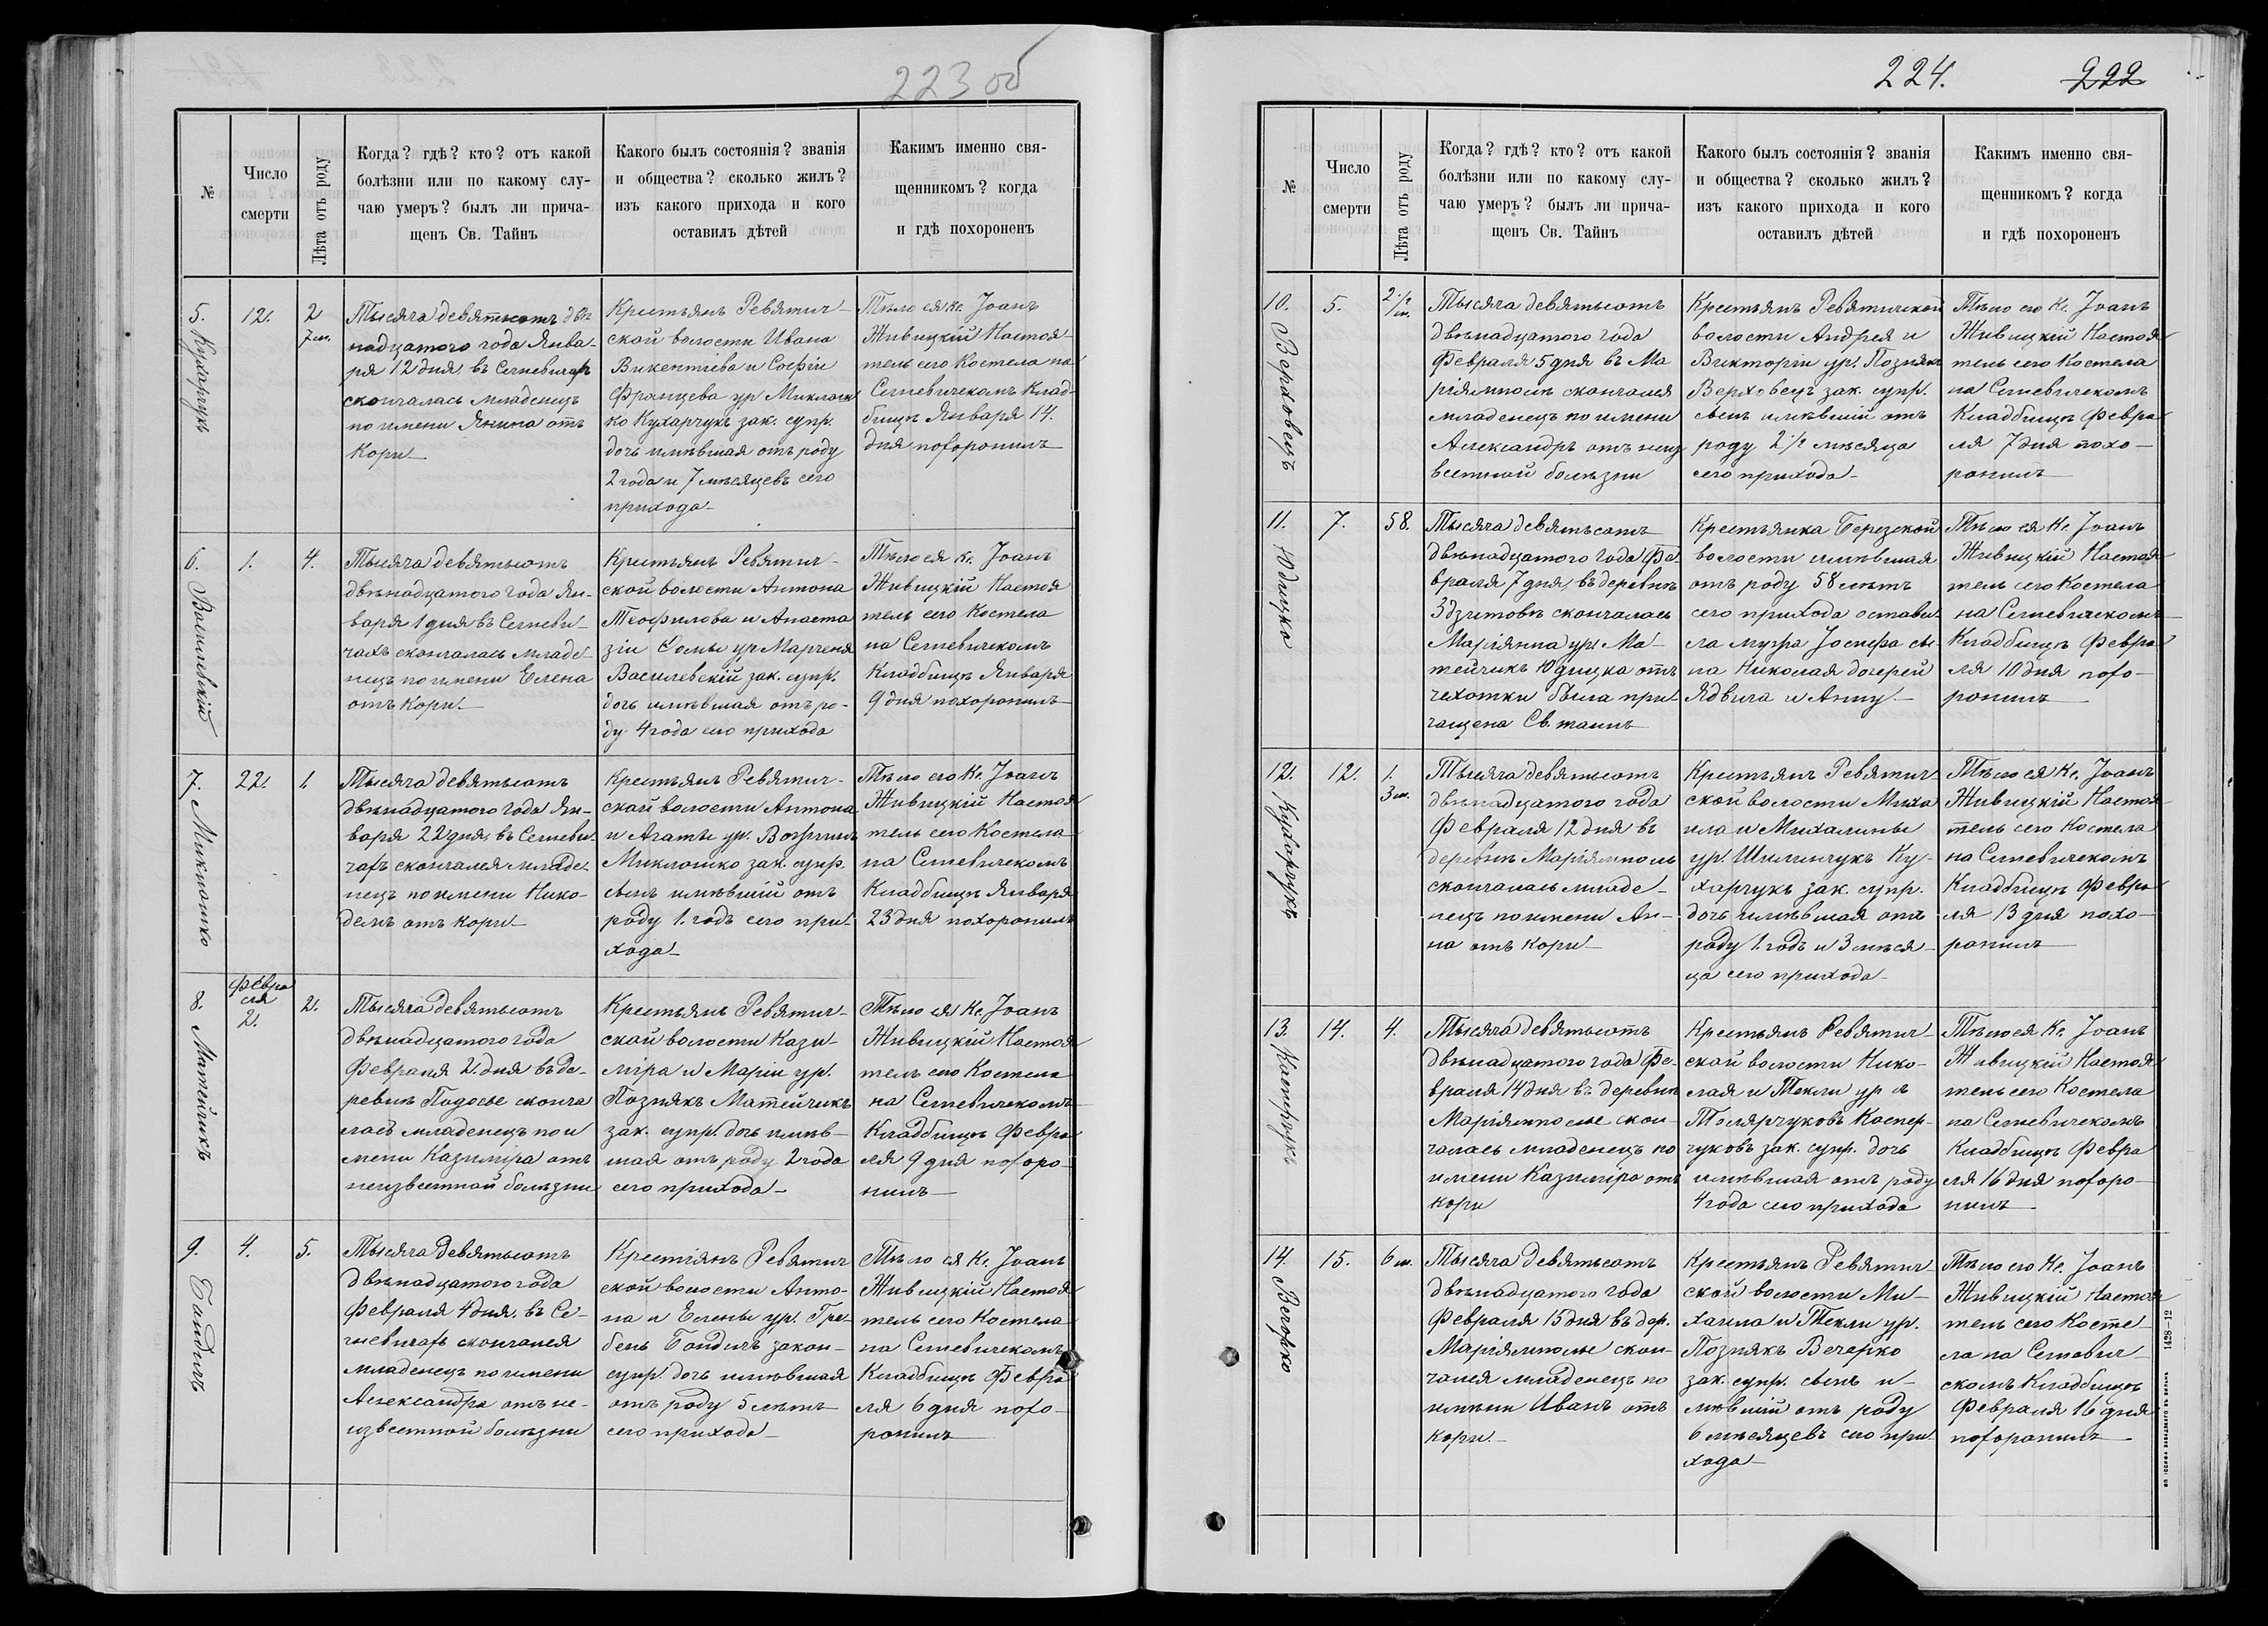 223 об
№
Число
смерти
Лѣта отъ роду
Когда? гдѣ? кто? отъ какой
болѣзни или по какому слу-
чаю умеръ? былъ ли прича-
щенъ Св. Тайнъ
Какого былъ состоянія? званія
и общества? сколько жилъ?
изъ какого прихода и кого
оставилъ дѣтей
Какимъ именно свя-
щенникомъ? когда
и гдѣ похороненъ
5. Кухарчукъ
12.
2
7 м.
Тысяча девятьсотъ двѣ
надцатого года Янва-
ря 12 дня, въ Сегневичахъ
скончалась младенецъ
по имени Янина отъ
Кори
Крестьянъ Ревятич-
ской волости Ивана
Викентіева и Софіи
Францева ур Миклош
ко Кухарчукъ зак. супр.
дочь имѣвшая отъ роду
2 года и 7 мѣсяцевъ сего
прихода
Тѣло ея Кс. Іоанъ
Живицкій Настоя-
тель сего Костела на
Сегневичскомъ Клад-
бищѣ Января 14.
дня похоронилъ
6. Василевскій
1.
4.
Тысяча девятьсотъ
двѣнадцатого года Ян-
варя 1 дня въ Сегневи-
чахъ скончалась младе-
нецъ по имени Елена
отъ Кори.
Крестьянъ Ревятич-
ской волости Антона
Теофилова и Анаста
зіи Сомы ур Марченя
Василевскій зак. супр.
дочь имѣвшая отъ ро-
ду 4 года сего прихода
Тѣло ея Кс. Іоанъ
Живицкій Настоя
тель сего Костела
на Сегневичскомъ
Кладбищѣ Января
9 дня похоронилъ
7. Миклошко
22.
1.
Тысяча девятьсотъ
двѣнадцатого года Ян-
варя 22 дня, въ Сегневи-
чахъ скончался младе-
нецъ по имени Нико-
демъ отъ кори
Крестьянъ Ревятич-
ской волости Антона
и Агаты ур.
Миклошко зак. супр.
сынъ имѣвшій отъ
роду 1. годъ сего при-
хода
Тѣло его Кс. Іоанъ
Живицкій Настоя
тель сего Костела
на Сегневичскомъ
Кладбищѣ Января
23 дня похоронилъ
8. Матейчикъ
Февра
ля
2.
2.
Тысяча девятьсотъ
двѣнадцатого года
Февраля 2. дня въ де-
ревнѣ Подосье сконча
лась младенецъ по и
мени Казиміра отъ
неизвестной болѣзни
Крестьянъ Ревятич-
ской волости Кази-
міра и Маріи ур.
Познякъ Матейчикъ
зак. супр. дочь имѣв-
шая отъ роду 2 года
сего прихода
Тѣло ея Кс. Іоанъ
Живицкій Настоя
тель сего Костела
на Сегневичскомъ
Кладбищѣ Февра
ля 9 дня похоро-
нилъ
9. Бандичъ
4.
5.
Тысяча девятьсотъ
двѣнадцатого года
Февраля 4 дня, въ Се-
гневичахъ скончался
младенецъ по имени
Александра отъ не-
известной болѣзни
Крестіянъ Ревятич
ской волости Анто-
на и Елены ур. Гре-
бень Бандичъ закон-
супр. дочь имѣвшая
отъ роду 5 лѣтъ
сего прихода
Тѣло ея Кс. Іоанъ
Живицкій Настоя
тель сего Костела
на Сегневичскомъ
Кладбищѣ Февра
ля 6 дня похо-
ронилъ
224.
222
№
Число
смерти
Лѣта отъ роду
Когда? гдѣ? кто? отъ какой
болѣзни или по какому слу-
чаю умеръ? былъ ли прича-
щенъ Св. Тайнъ
Какого былъ состоянія? званія
и общества? сколько жилъ?
изъ какого прихода и кого
оставилъ дѣтей
Какимъ именно свя-
щенникомъ? когда
и гдѣ похороненъ
10. Верховецъ
5.
2 1/2
м.
Тысяча девятьсотъ
двѣнадцатого года
Февраля 5 дня въ Ма
ріямполѣ скончался
младенецъ по имени
Александръ отъ неиз
вестной болѣзни
Крестьянъ Ревятичской
волости Андрея и
Викторіи ур. Познякъ
Верховецъ зак. супр.
сынъ имѣвшій отъ
роду 2 1/2 мѣсяца
сего прихода
Тѣло его Кс. Іоанъ
Живицкій Настоя
тель сего Костела
на Сегневичскомъ
Кладбищѣ Февра
ля 7 дня похо-
ронилъ
11. Юдицко
7.
58.
Тысяча девятьсотъ
двѣнадцатого года Фе
враля 7 дня, въ деревнѣ
Здзитовѣ скончалась
Маріянна ур. Ма-
тейчикъ Юдицка отъ
чехотки была при-
чащена Св. таинъ
Крестьянка Березской
волости имѣвшая
отъ роду 58 лѣтъ
сего прихода остави-
ла мужа Іосифа сы-
на Николая дочерей
Ядвига и Анну
Тѣло ея Кс. Іоанъ
Живицкій Настоя
тель сего Костела
на Сегневичскомъ
Кладбищѣ Февра
ля 10 дня похо-
ронилъ
12. Кухарчукъ
12.
1.
3 м.
Тысяча девятьсотъ
двѣнадцатого года
Февраля 12 дня въ
деревнѣ Маріямполь
скончалась младе-
нецъ по имени Ан-
на отъ кори
Крестьянъ Ревятич-
ской волости Миха
ила и Михалины
ур. Шиличукъ Ку-
харчукъ зак. супр.
дочь имѣвшая отъ
роду 1. годъ и 3 мѣся-
ца сего прихода
Тѣло ея Кс. Іоанъ
Живицкій Настоя-
тель сего Костела
на Сегневичскомъ
Кладбищѣ Февра
ля 13 дня похо-
ронилъ
13. Касперчукъ
14.
4.
Тысяча девятьсотъ
двѣнадцатого года Фе-
враля 14 дня въ деревнѣ
Маріямполье скон-
чалась младенецъ по
имени Казиміра отъ
кори
Крестьянъ Ревятич-
ской волости Нико-
лая и Текли ур
Толярчуковъ Каспер-
чуковъ зак. супр. дочь
имѣвшая отъ роду
4 года сего прихода
Тѣло ея Кс. Іоанъ
Живицкій Настоя
тель сего Костела
на Сегневичскомъ
Кладбищѣ Февра
ля 16 дня похоро-
нилъ
14. Вечорко
15.
6 м.
Тысяча девятьсотъ
двѣнадцатого года
Февраля 15 дня въ дер.
Маріямполье скон-
чался младенецъ по
имени Иванъ отъ
кори.
Крестьянъ Ревятич-
ской волости Ми-
хаила и Текли ур.
Познякъ Вечорко
зак. супр. сынъ и-
мѣвшій отъ роду
6 мѣсяцевъ сего при-
хода
Тѣло его Кс. Іоанъ
Живицкій Настоя
тель сего Косте-
ла на Сегневич-
скомъ Кладбищѣ
Февраля 16 дня
похоронилъ
1428—12